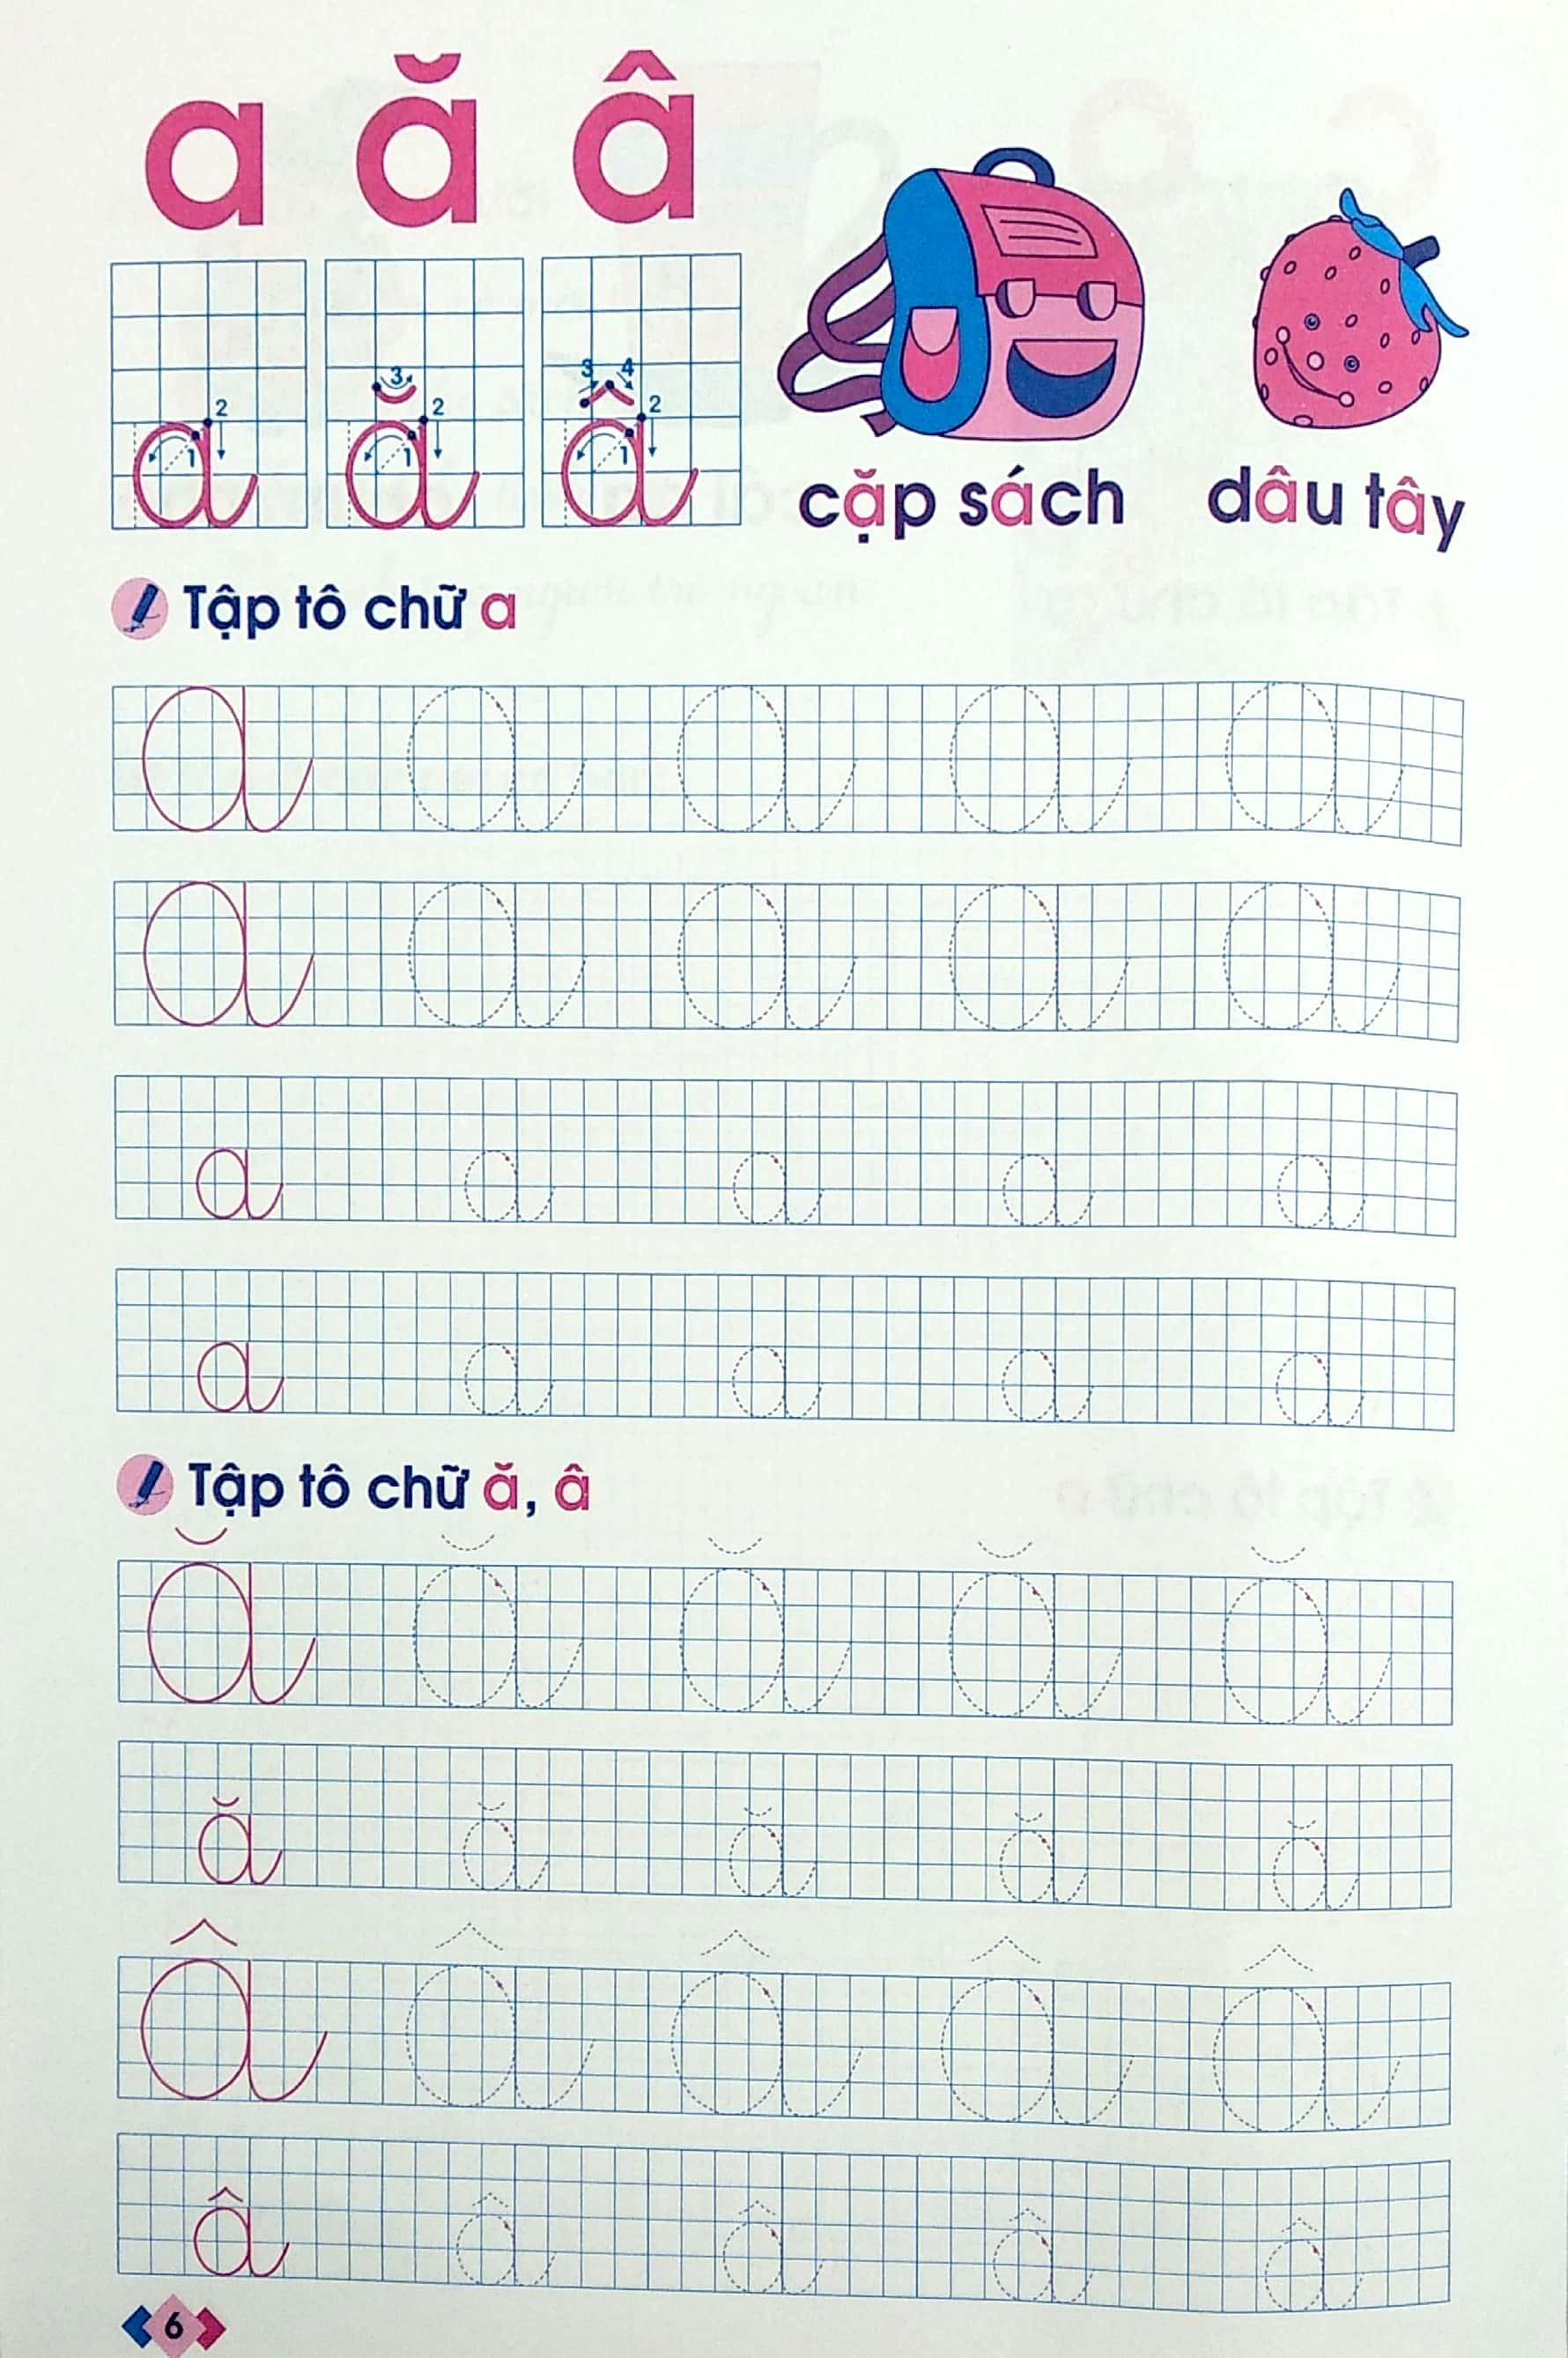 a ă â
2 1 a
3 2 1 ă
3 4 2 1 â
cặp sách dâu tây
Tập tô chữ a
a a a a a
a a a a a
a a a a a
a a a a a
Tập tô chữ ă, â
ă ă ă ă ă
ă ă ă ă ă
â â â â â
â â â â â
6